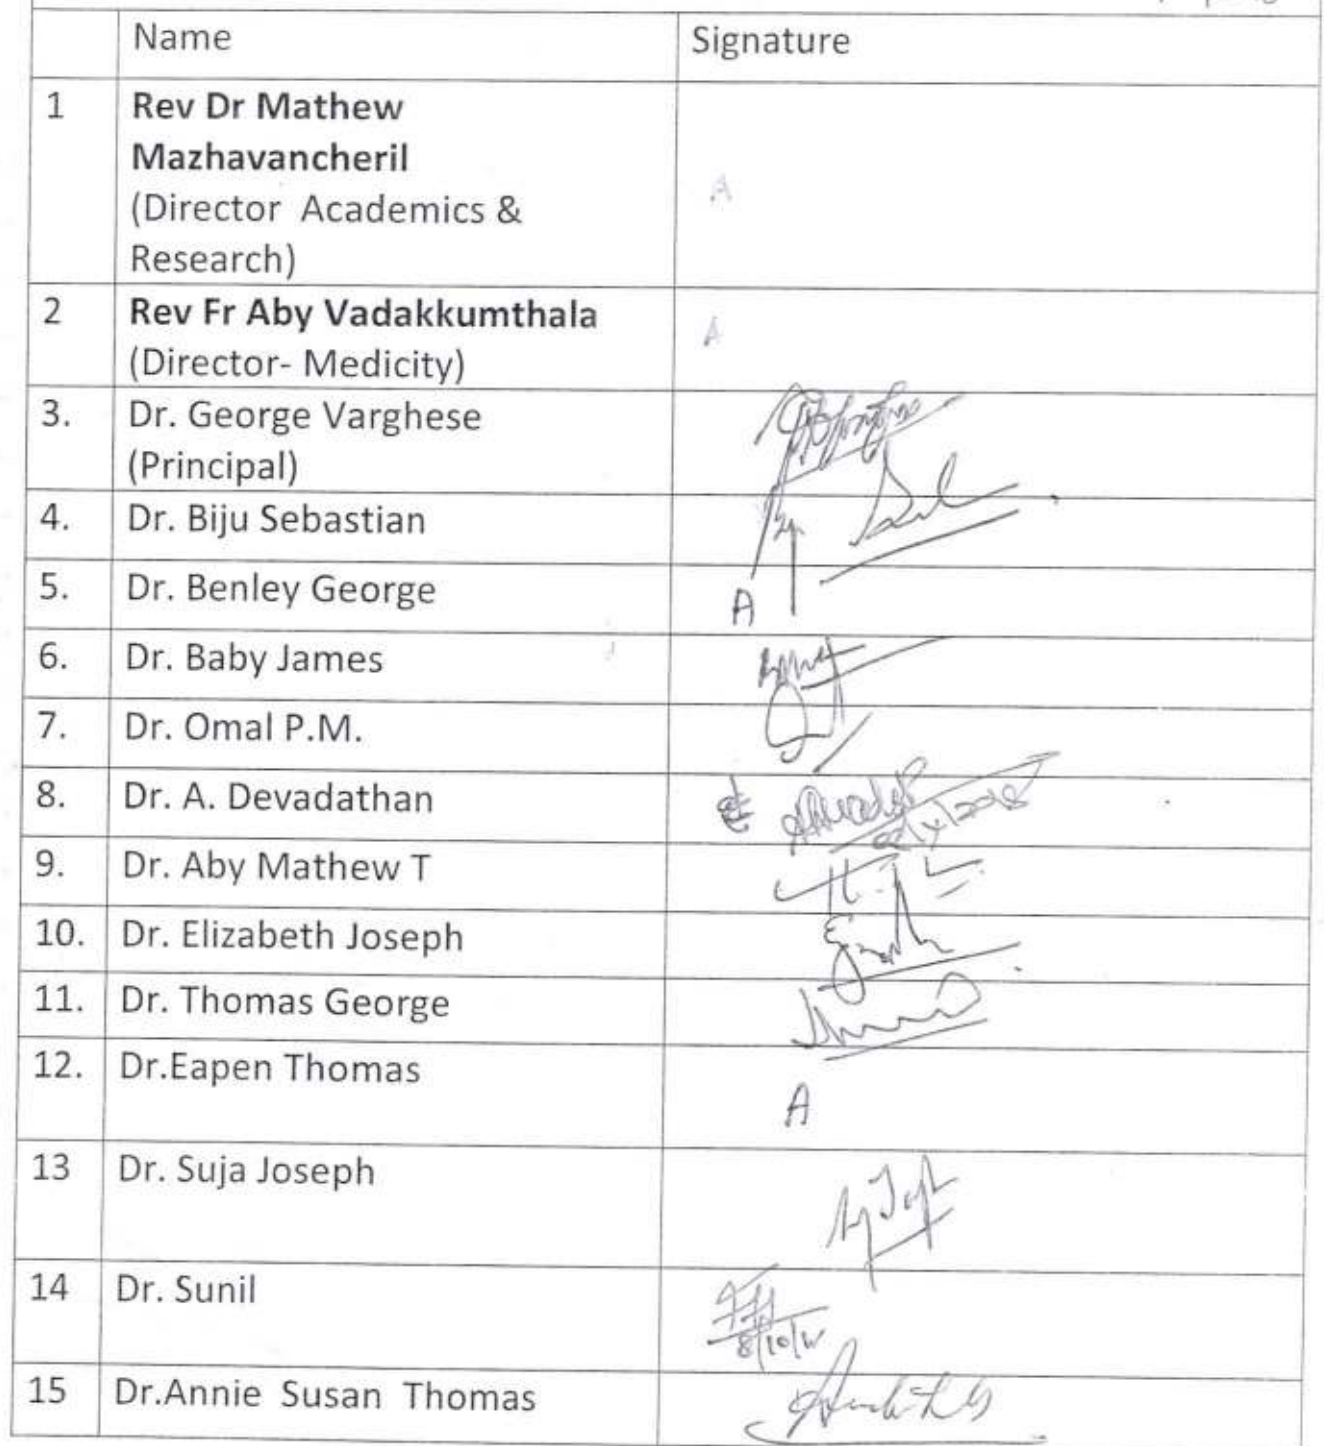 Name Signature
1 Rev Dr Mathew
Mazhavancheril
(Director Academics &
Research)
A
2 Rev Fr Aby Vadakkumthala
(Director- Medicity)
A
3. Dr. George Varghese
(Principal)
4. Dr. Biju Sebastian
5. Dr. Benley George A
6. Dr. Baby James
7. Dr. Omal P.M.
8. Dr. A. Devadathan
9. Dr. Aby Mathew T
10. Dr. Elizabeth Joseph
11. Dr. Thomas George
12. Dr.Eapen Thomas
A
13 Dr. Suja Joseph
14 Dr. Sunil
15 Dr.Annie Susan Thomas